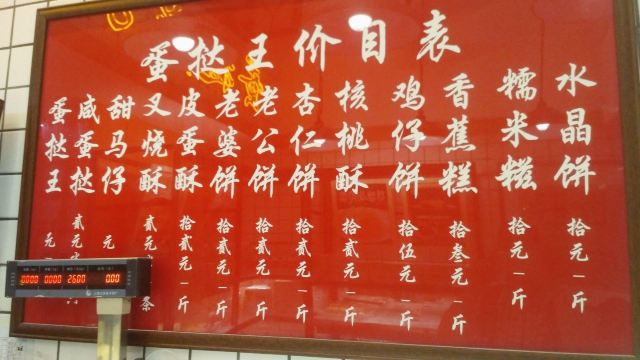 蛋挞王价目表
蛋挞王 元
咸蛋挞 贰元
甜马仔 元
叉烧酥 贰元 条
皮蛋酥 拾贰元一斤
老婆饼 拾贰元一斤
老公饼 拾贰元一斤
杏仁饼 拾贰元一斤
核桃酥 拾贰元一斤
鸡仔饼 拾伍元一斤
香蕉糕 拾叁元一斤
糯米糍 拾元一斤
水晶饼 拾元一斤
0000 0000 2600 000